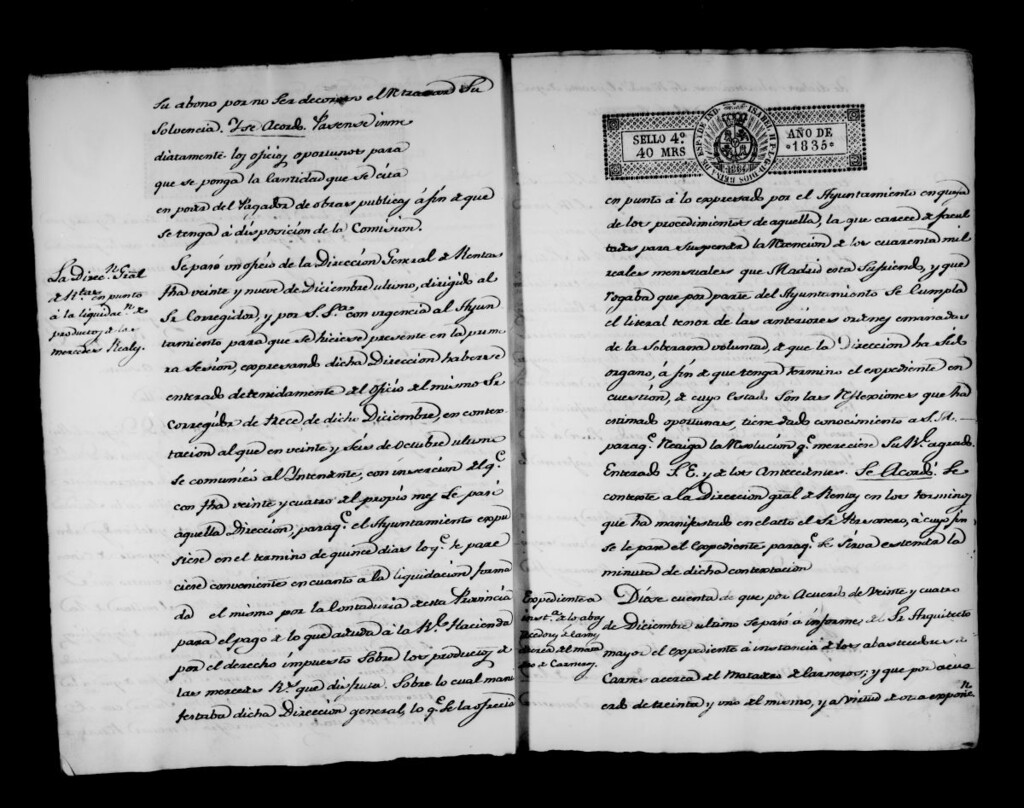 su abono por no ser decoroso el retrasar su
solvencia. Y se Acordó. Pasense inme
diatamente los oficios oportunos para
que se ponga la Cantidad que se cita
en poder del Pagador de obras publicas á fin de que
se tenga á disposicion de la Comision.
La Direc.n Gral
de R.tas en punto
á la liquidac.n de
productos de las
mercedes Reales.
Se pasó un oficio de la Direccion General de Rentas
fha veinte y nueve de Diciembre ultimo, dirigido al
Sr Corregidor, y por S. S.ria con urgencia al Ayun
tamiento para que se hiciese presente en la prime
ra Sesion, expresando dicha Direccion haberse
enterado detenidamente del Oficio del mismo Sr
Corregidor de trece de dicho Diciembre, en contes
tacion al que en veinte y seis de Octubre ultimo
se comunicó al Intendente, con insercion del q.e
con fha veinte y cuatro del propio mes se pasó
aquella Direccion, paraq.e el Ayuntamiento expu
siese en el termino de quince dias lo q.e le pare
ciese conveniente en cuanto á la liquidacion forma
da el mismo por la Contaduria de esta Provincia
para el pago de lo que adeuda á la R.l Hacienda
por el derecho impuesto sobre los productos de
las mercedes R.s que disfruta. Sobre lo cual mani
festaba dicha Direccion general, lo q.e se la ofrecia
SELLO 4º
40 MRS
ISABEL II P.L.G.D. DIOS REINA DE ESP. Y DE IND.
AÑO DE
1835
en punto á lo expresado por el Ayuntamiento en queja
de los procedimientos de aquella, la que carece de facul
tades para suspender la retencion de los cuarenta mil
reales mensuales que Madrid esta sufriendo, y que
rogaba que por parte del Ayuntamiento se cumpla
el literal tenor de las anteriores ordenes emanadas
de la Soberana voluntad, de que la Direccion ha sido
organo, á fin de que tenga termino el expediente en
cuestion, de cuyo estado son las reflexiones que ha
estimado oportunas, tiene dado conocimiento á S. M.
paraq.e recaiga la resolucion q.e mereciere su R.l agrado.
Enterado S. E. y de los Antecedentes. Se Acordó. Se
conteste á la Direccion gral de Rentas en los terminos
que ha manifestado en el acto el Sr Personero, á cuyo fin
se le pase el Expediente paraq.e se sirva estender la
minuta de dicha contestacion
Expediente a
inst.a de los abas
tecedores de carnes
acerca del mata
dero de Carneros.
Diose cuenta de que por Acuerdo de veinte y cuatro
de Diciembre ultimo se pasó a informe del Sr Arquitecto
mayor el expediente á instancia de los abastecedores de
Carnes acerca del Matadero de Carneros; y que por acuer
do de treinta y uno del mismo, y a virtud de otra expon.n